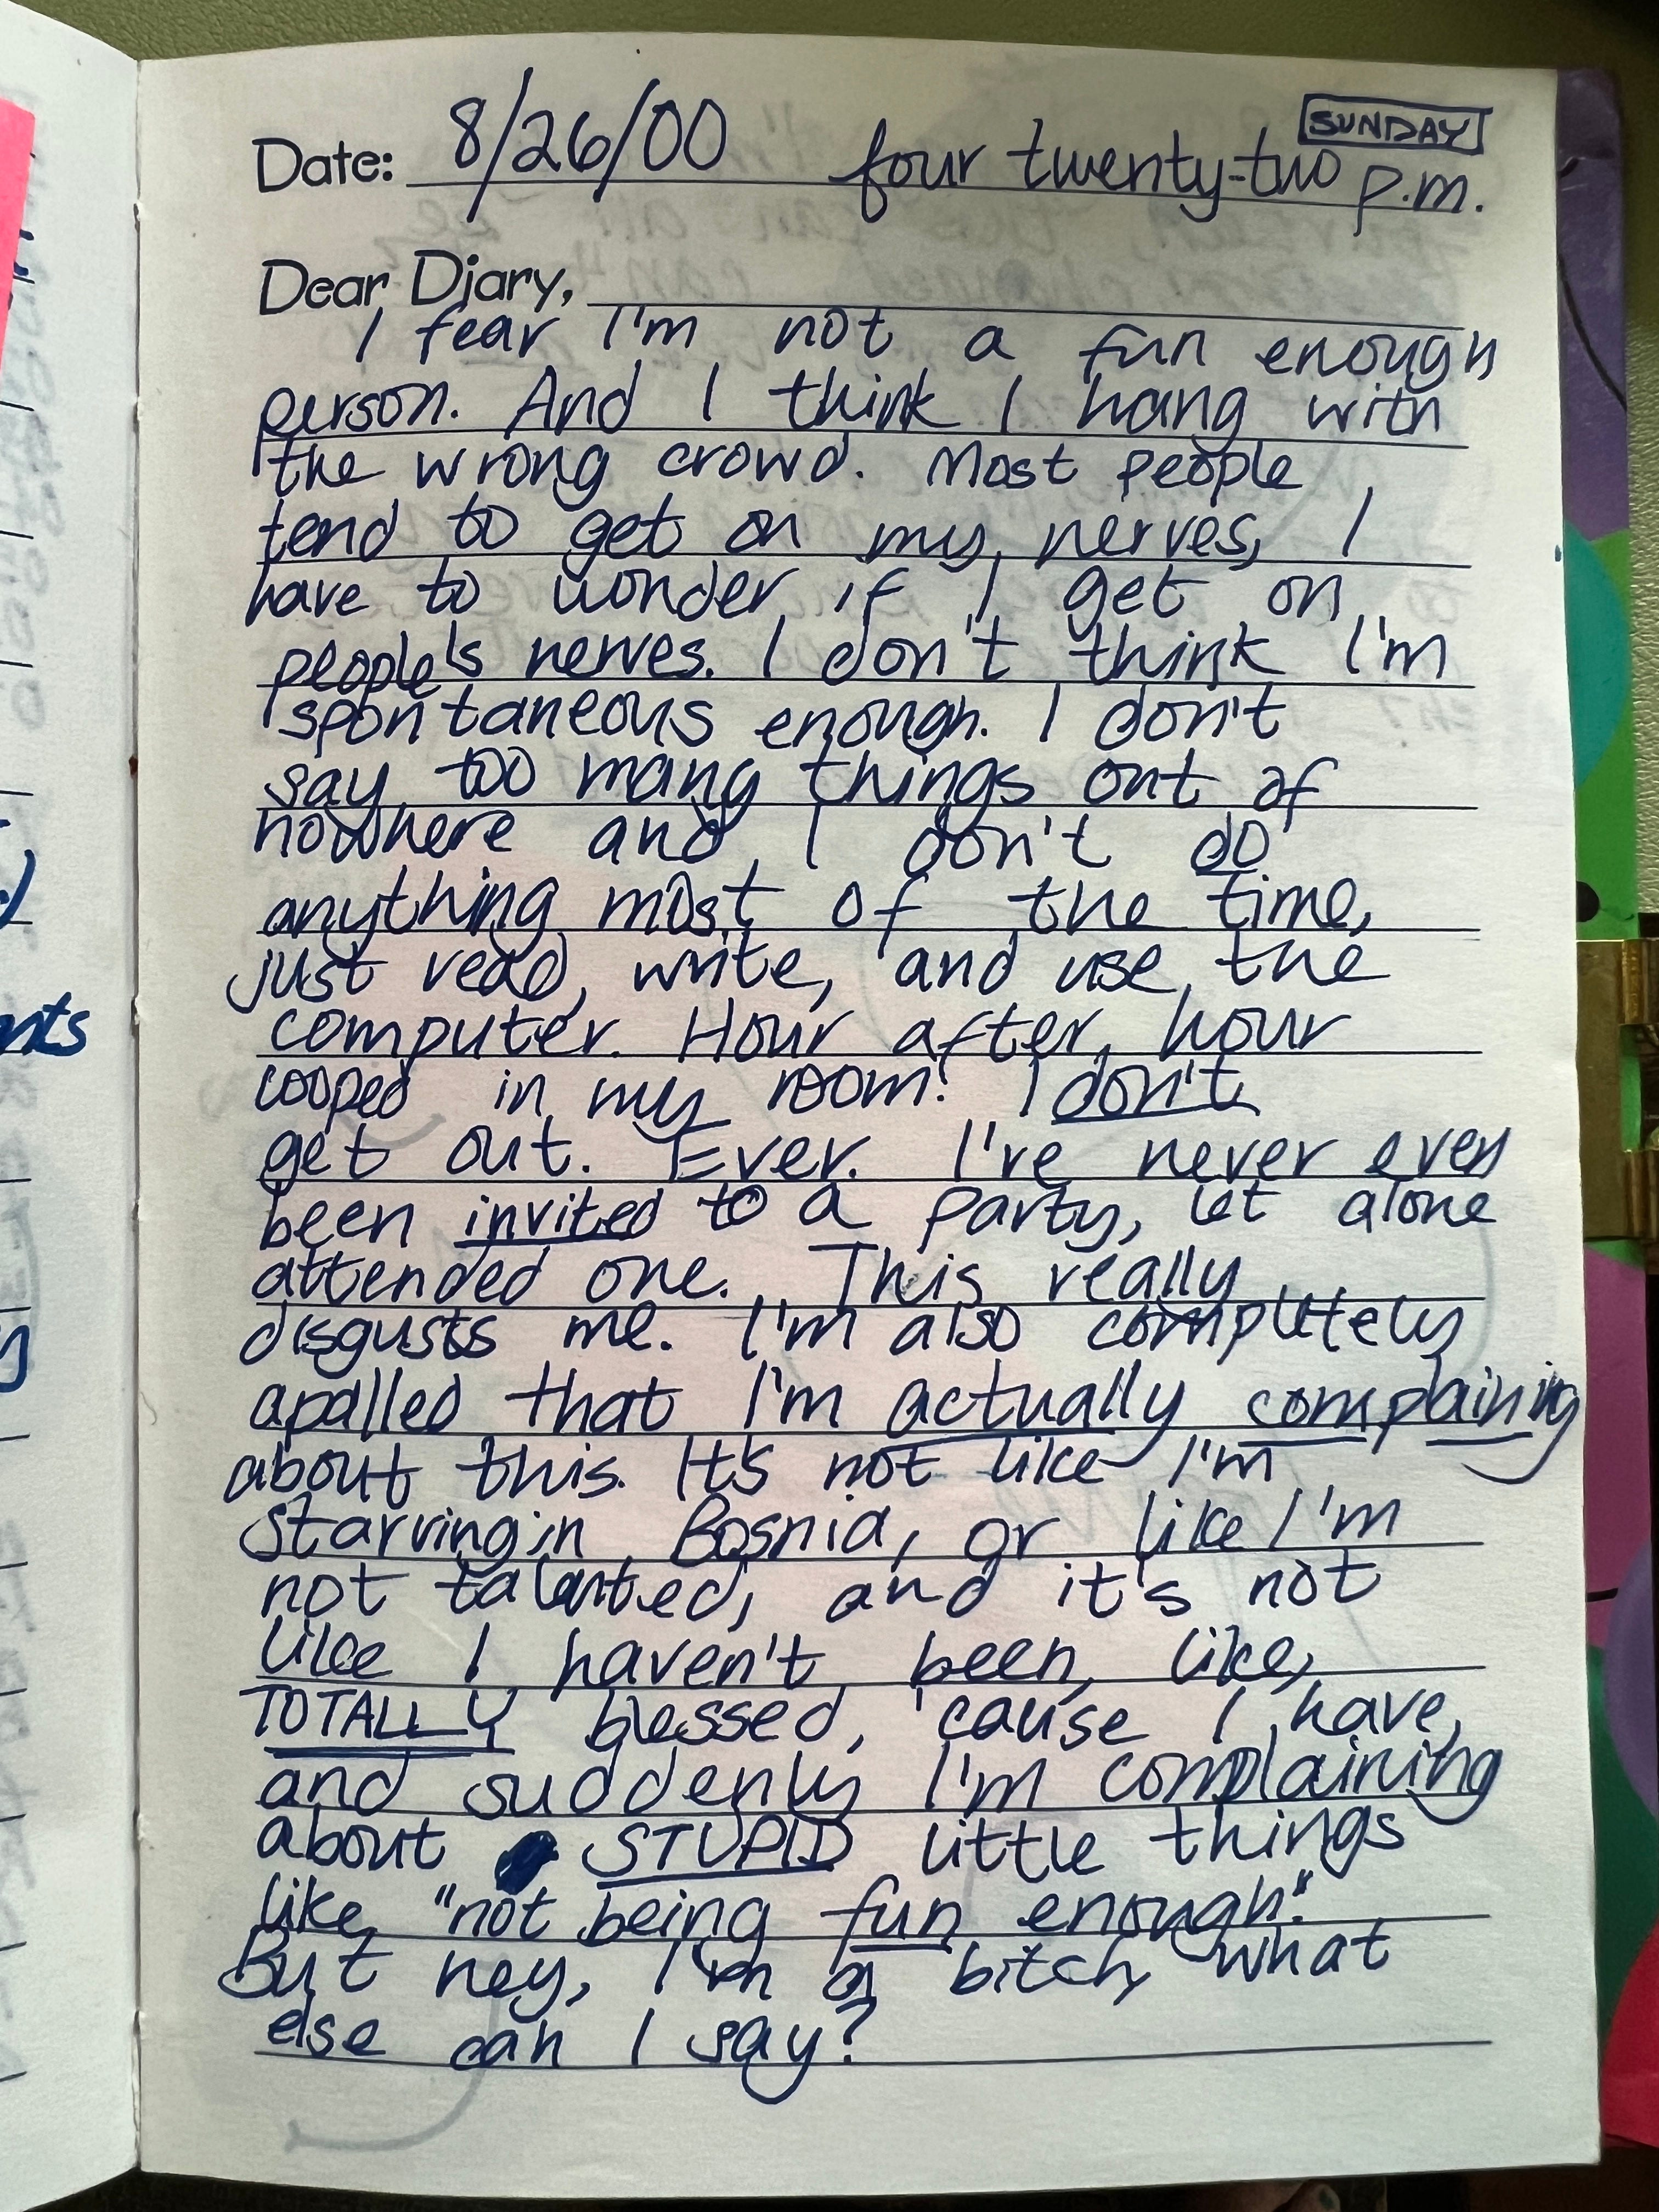 SUNDAY
Date: 8/26/00 four twenty-two p.m.
Dear Diary,
I fear I'm not a fun enough
person. And I think I hang with
the wrong crowd. Most people
tend to get on my nerves, I
have to wonder if I get on
people's nerves. I don't think I'm
spontaneous enough. I don't
say too many things out of
nowhere and I don't do
anything most of the time,
just read, write, and use the
computer. Hour after hour
cooped in my room! I don't
get out. Ever. I've never even
been invited to a party, let alone
attended one. This really
disgusts me. I'm also completely
apalled that I'm actually complaining
about this. It's not like I'm
starving in Bosnia, or like I'm
not talented, and it's not
like I haven't been, like,
TOTALLY blessed, 'cause I have,
and suddenly I'm complaining
about STUPID little things
like "not being fun enough."
But hey, I'm a bitch, what
else can I say?
nts